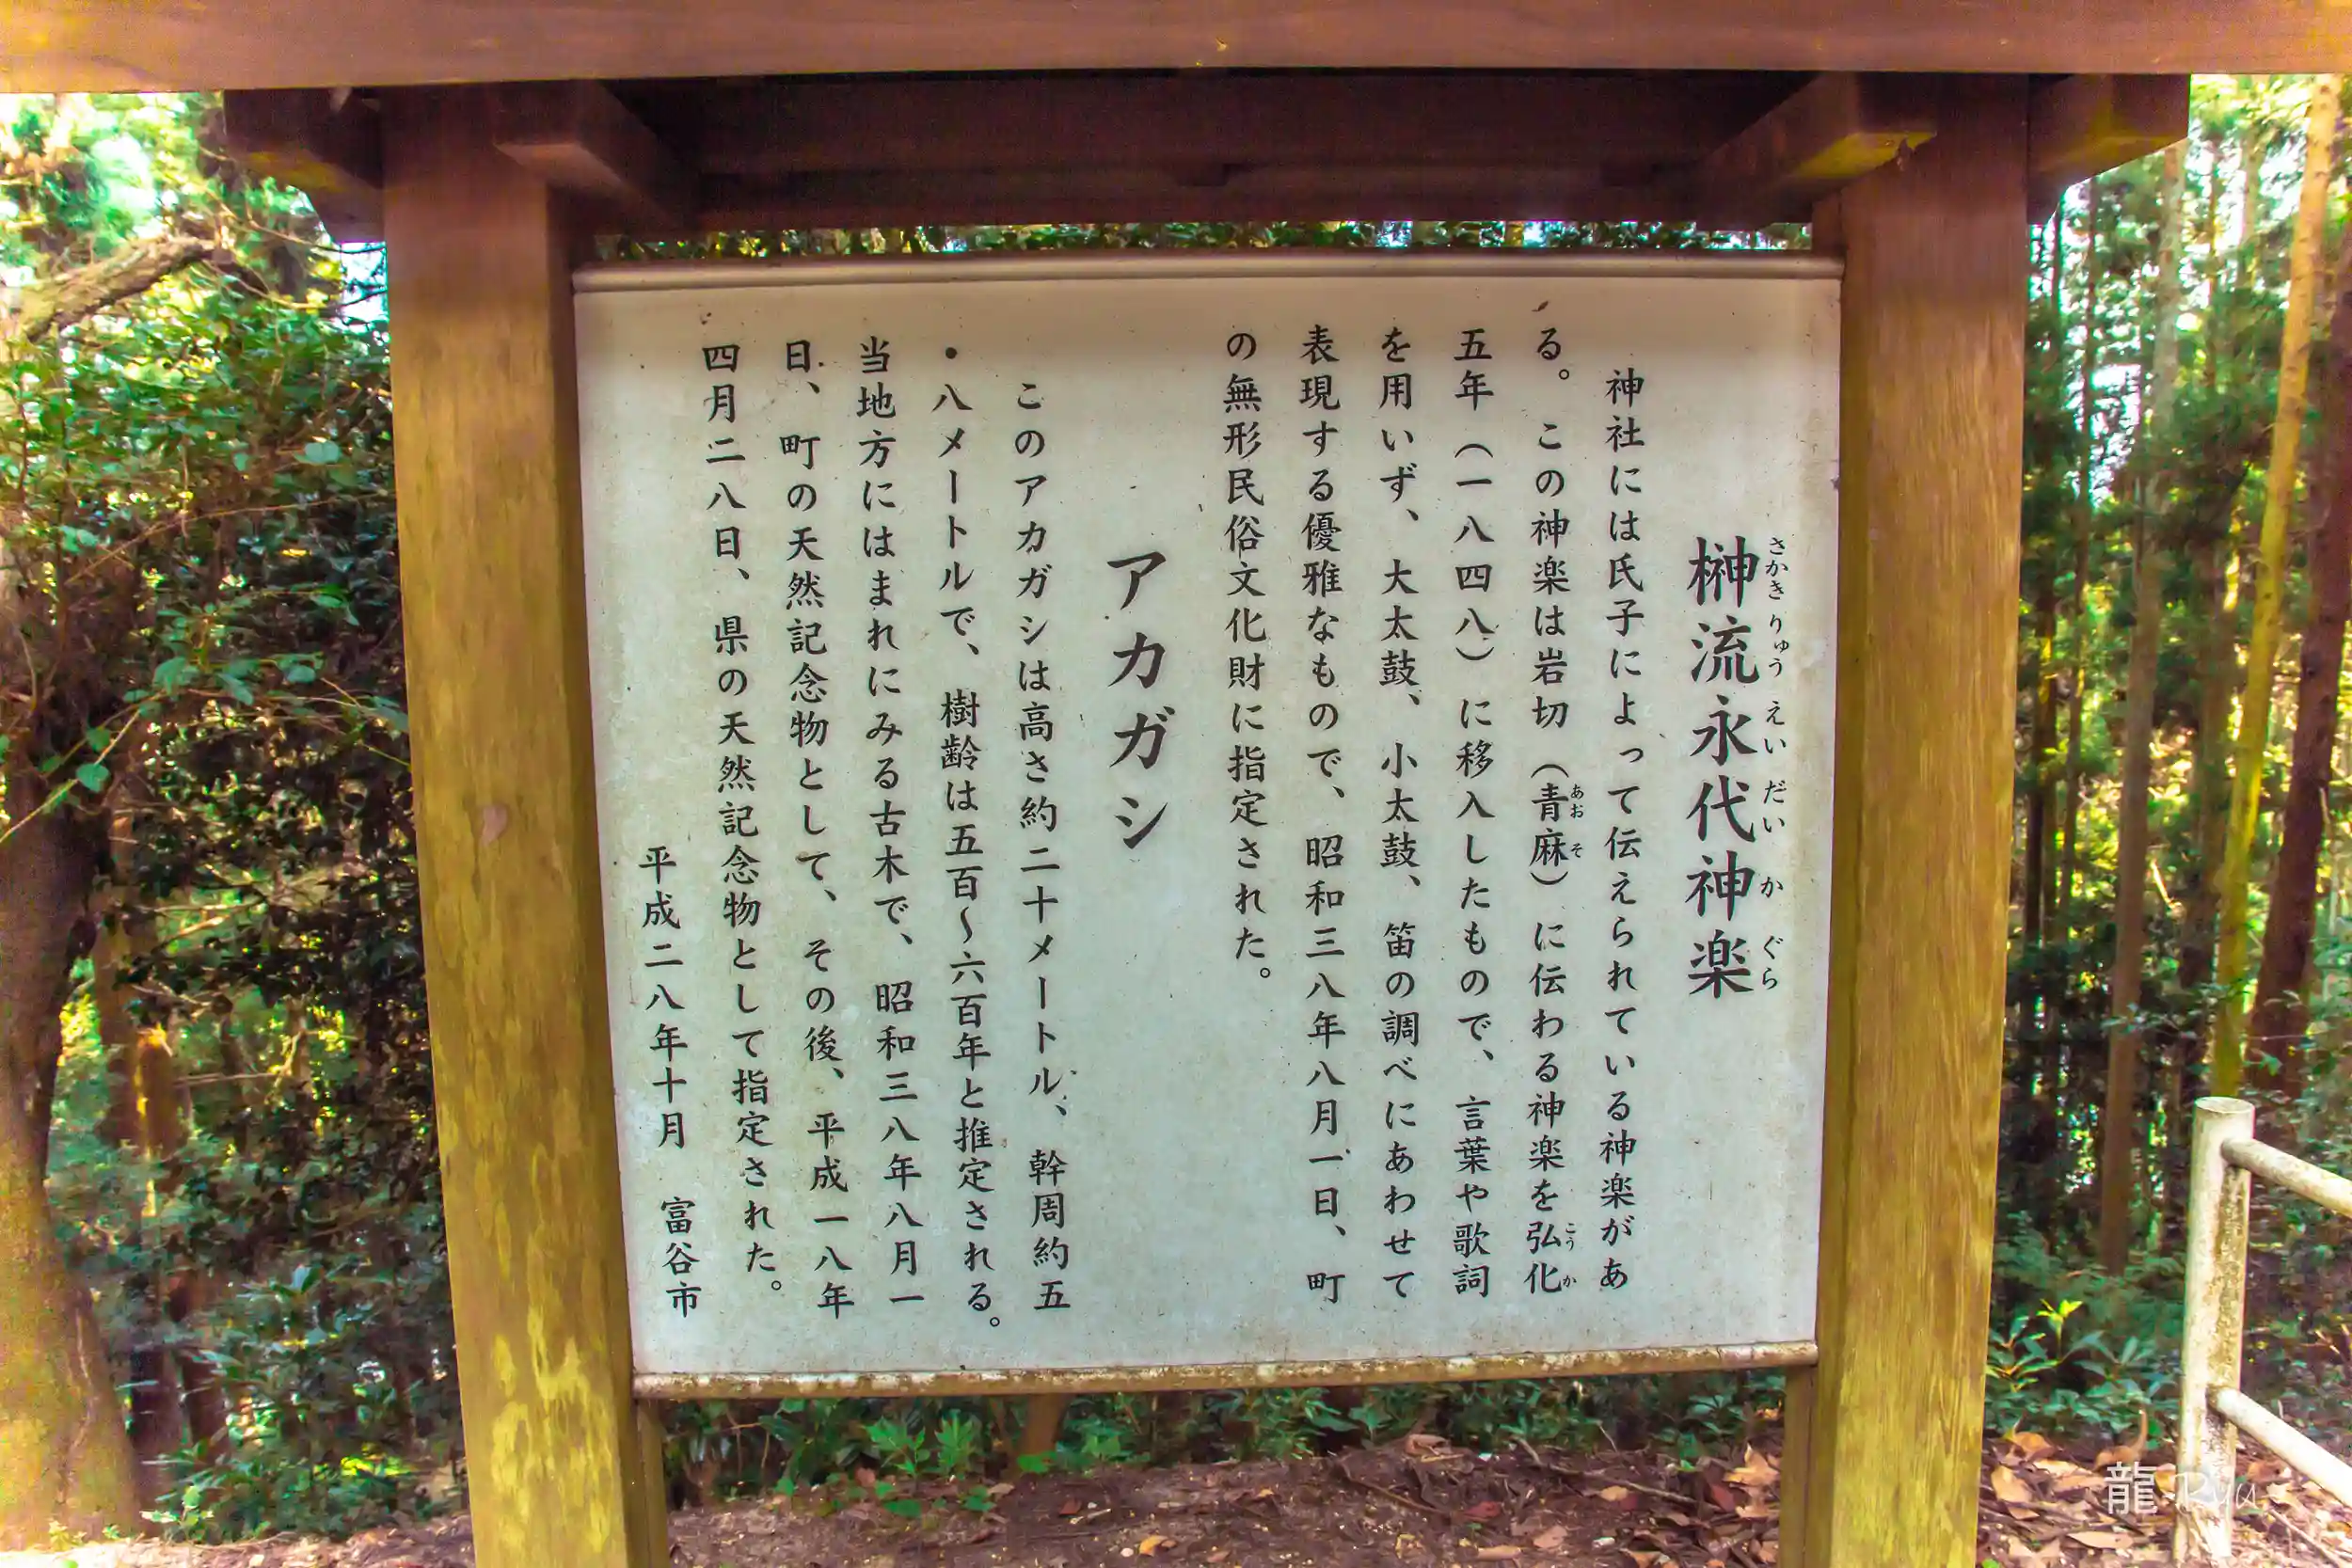 榊流永代神楽
さかきりゅうえいだいかぐら
神社には氏子によって伝えられている神楽があ
る。この神楽は岩切（青麻）に伝わる神楽を弘化
あおそ
こうか
五年（一八四八）に移入したもので、言葉や歌詞
を用いず、大太鼓、小太鼓、笛の調べにあわせて
表現する優雅なもので、昭和三八年八月一日、町
の無形民俗文化財に指定された。
アカガシ
このアカガシは高さ約二十メートル、幹周約五
・八メートルで、樹齢は五百～六百年と推定される。
当地方にはまれにみる古木で、昭和三八年八月一
日、町の天然記念物として、その後、平成一八年
四月二八日、県の天然記念物として指定された。
平成二八年十月　富谷市
龍 Ryu